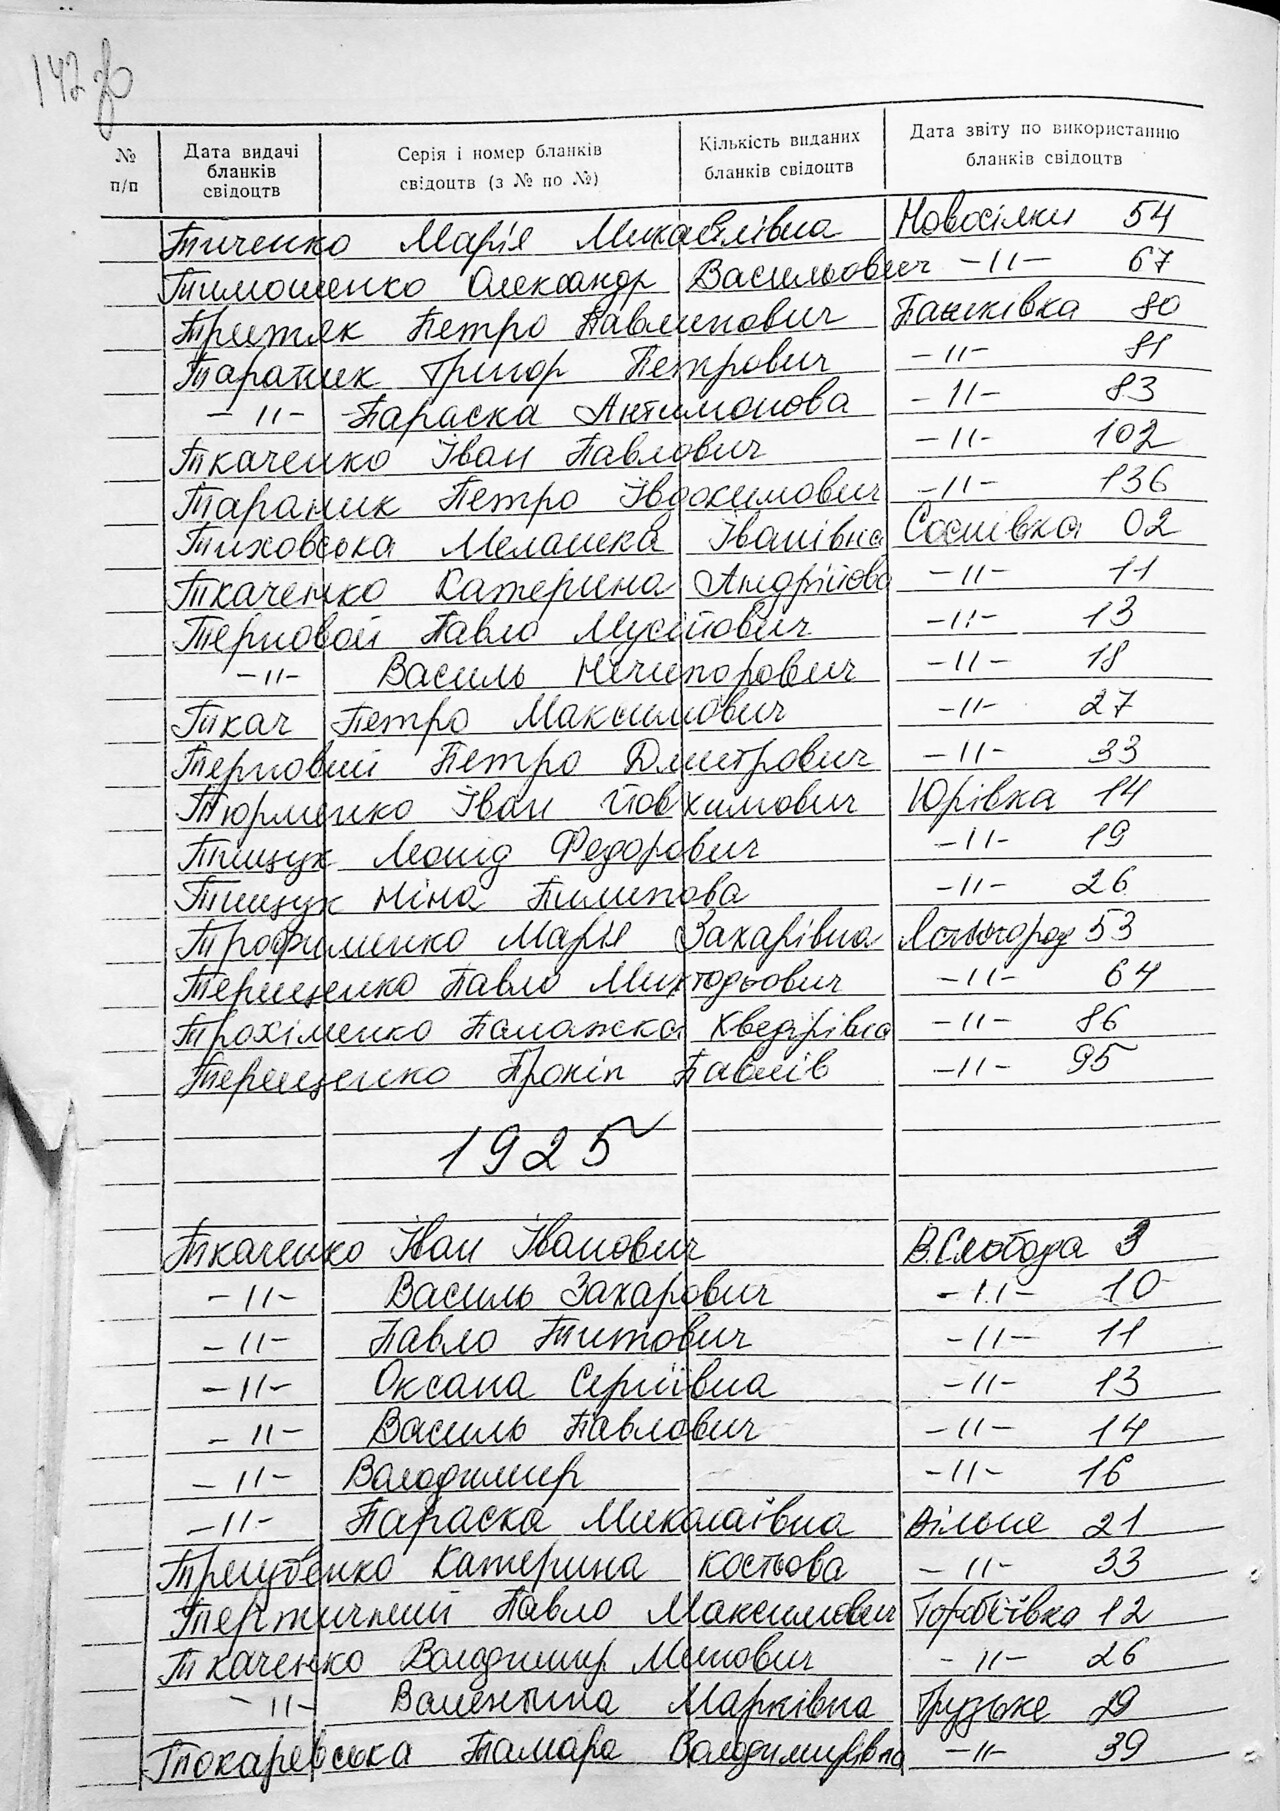 142 зв
№ п/п Дата видачі бланків свідоцтв Серія і номер бланків свідоцтв (з № по №) Кількість виданих бланків свідоцтв Дата звіту по використанню бланків свідоцтв
Тиченко Марія Михайлівна Новосілки 54
Тимошенко Олександр Васильович -11- 67
Третяк Петро Павлипович Пашківка 80
Тараник Григор Петрович -11- 81
-11- Параска Антимонова -11- 83
Ткаченко Іван Павлович -11- 102
Тараник Петро Івдокимович -11- 136
Тиховська Мелашка Іванівна Соснівка 02
Ткаченко Катерина Андрійова -11- 11
Терновой Павло Мусійович -11- 13
-11- Василь Нечипорович -11- 18
Ткач Петро Максимович -11- 27
Терновий Петро Дмитрович -11- 33
Тюрменко Іван Йовхимович Юрівка 14
Тищук Леонід Федорович -11- 19
Тищук Ніна Пилипова -11- 26
Трофименко Марія Захарівна 53
Терещенко Павло -11- 64
Трохіменко Палажка Хведірівна -11- 86
Терещенко Прокіп Павлів -11- 95
1925
Ткаченко Іван Іванович В.Слобода 3
-11- Василь Захарович -11- 10
-11- Павло Титович -11- 11
-11- Оксана Сергіївна -11- 13
-11- Василь Павлович -11- 14
-11- Володимир -11- 16
-11- Параска Миколаївна Вільне 21
Трегубенко Катерина Костьова -11- 33
Павло Максимович Горобіївка 12
Ткаченко Володимир Минович -11- 26
-11- Валентина Марківна Грузьке 29
Токаревська Тамара Володимирівна -11- 39